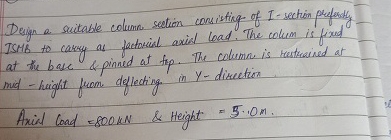 Design a suitable column section consisting of I-section preferably
ISMB to carry as factorial axial load. The colum is fixed
at the base & pinned at top. The column is restrained at
mid-height from deflecting in Y-direction
Axial load =800 kN & Height = 5.0m.